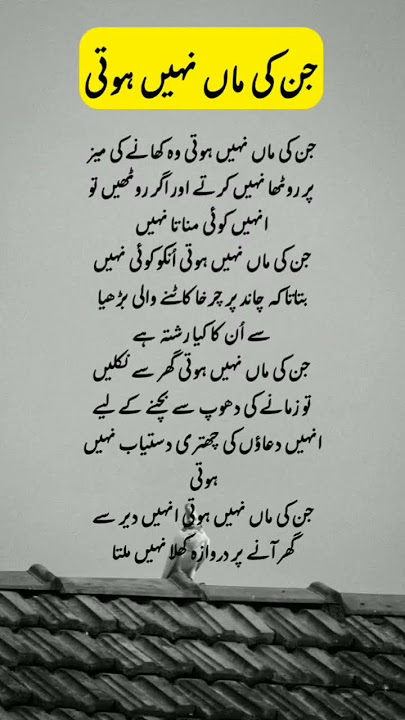 جن کی ماں نہیں ہوتی
جن کی ماں نہیں ہوتی وہ کھانے کی میز
پر روٹھا نہیں کرتے اور اگر روٹھیں تو
انہیں کوئی مناتا نہیں
جن کی ماں نہیں ہوتی اُنکو کوئی نہیں
بتاتا کہ چاند پر چرخا کاٹنے والی بڑھیا
سے اُن کا کیا رشتہ ہے
جن کی ماں نہیں ہوتی گھر سے نکلیں
تو زمانے کی دھوپ سے بچنے کے لیے
انہیں دعاؤں کی چھتری دستیاب نہیں
ہوتی
جن کی ماں نہیں ہوتی انہیں دیر سے
گھر آنے پر دروازہ کھلا نہیں ملتا